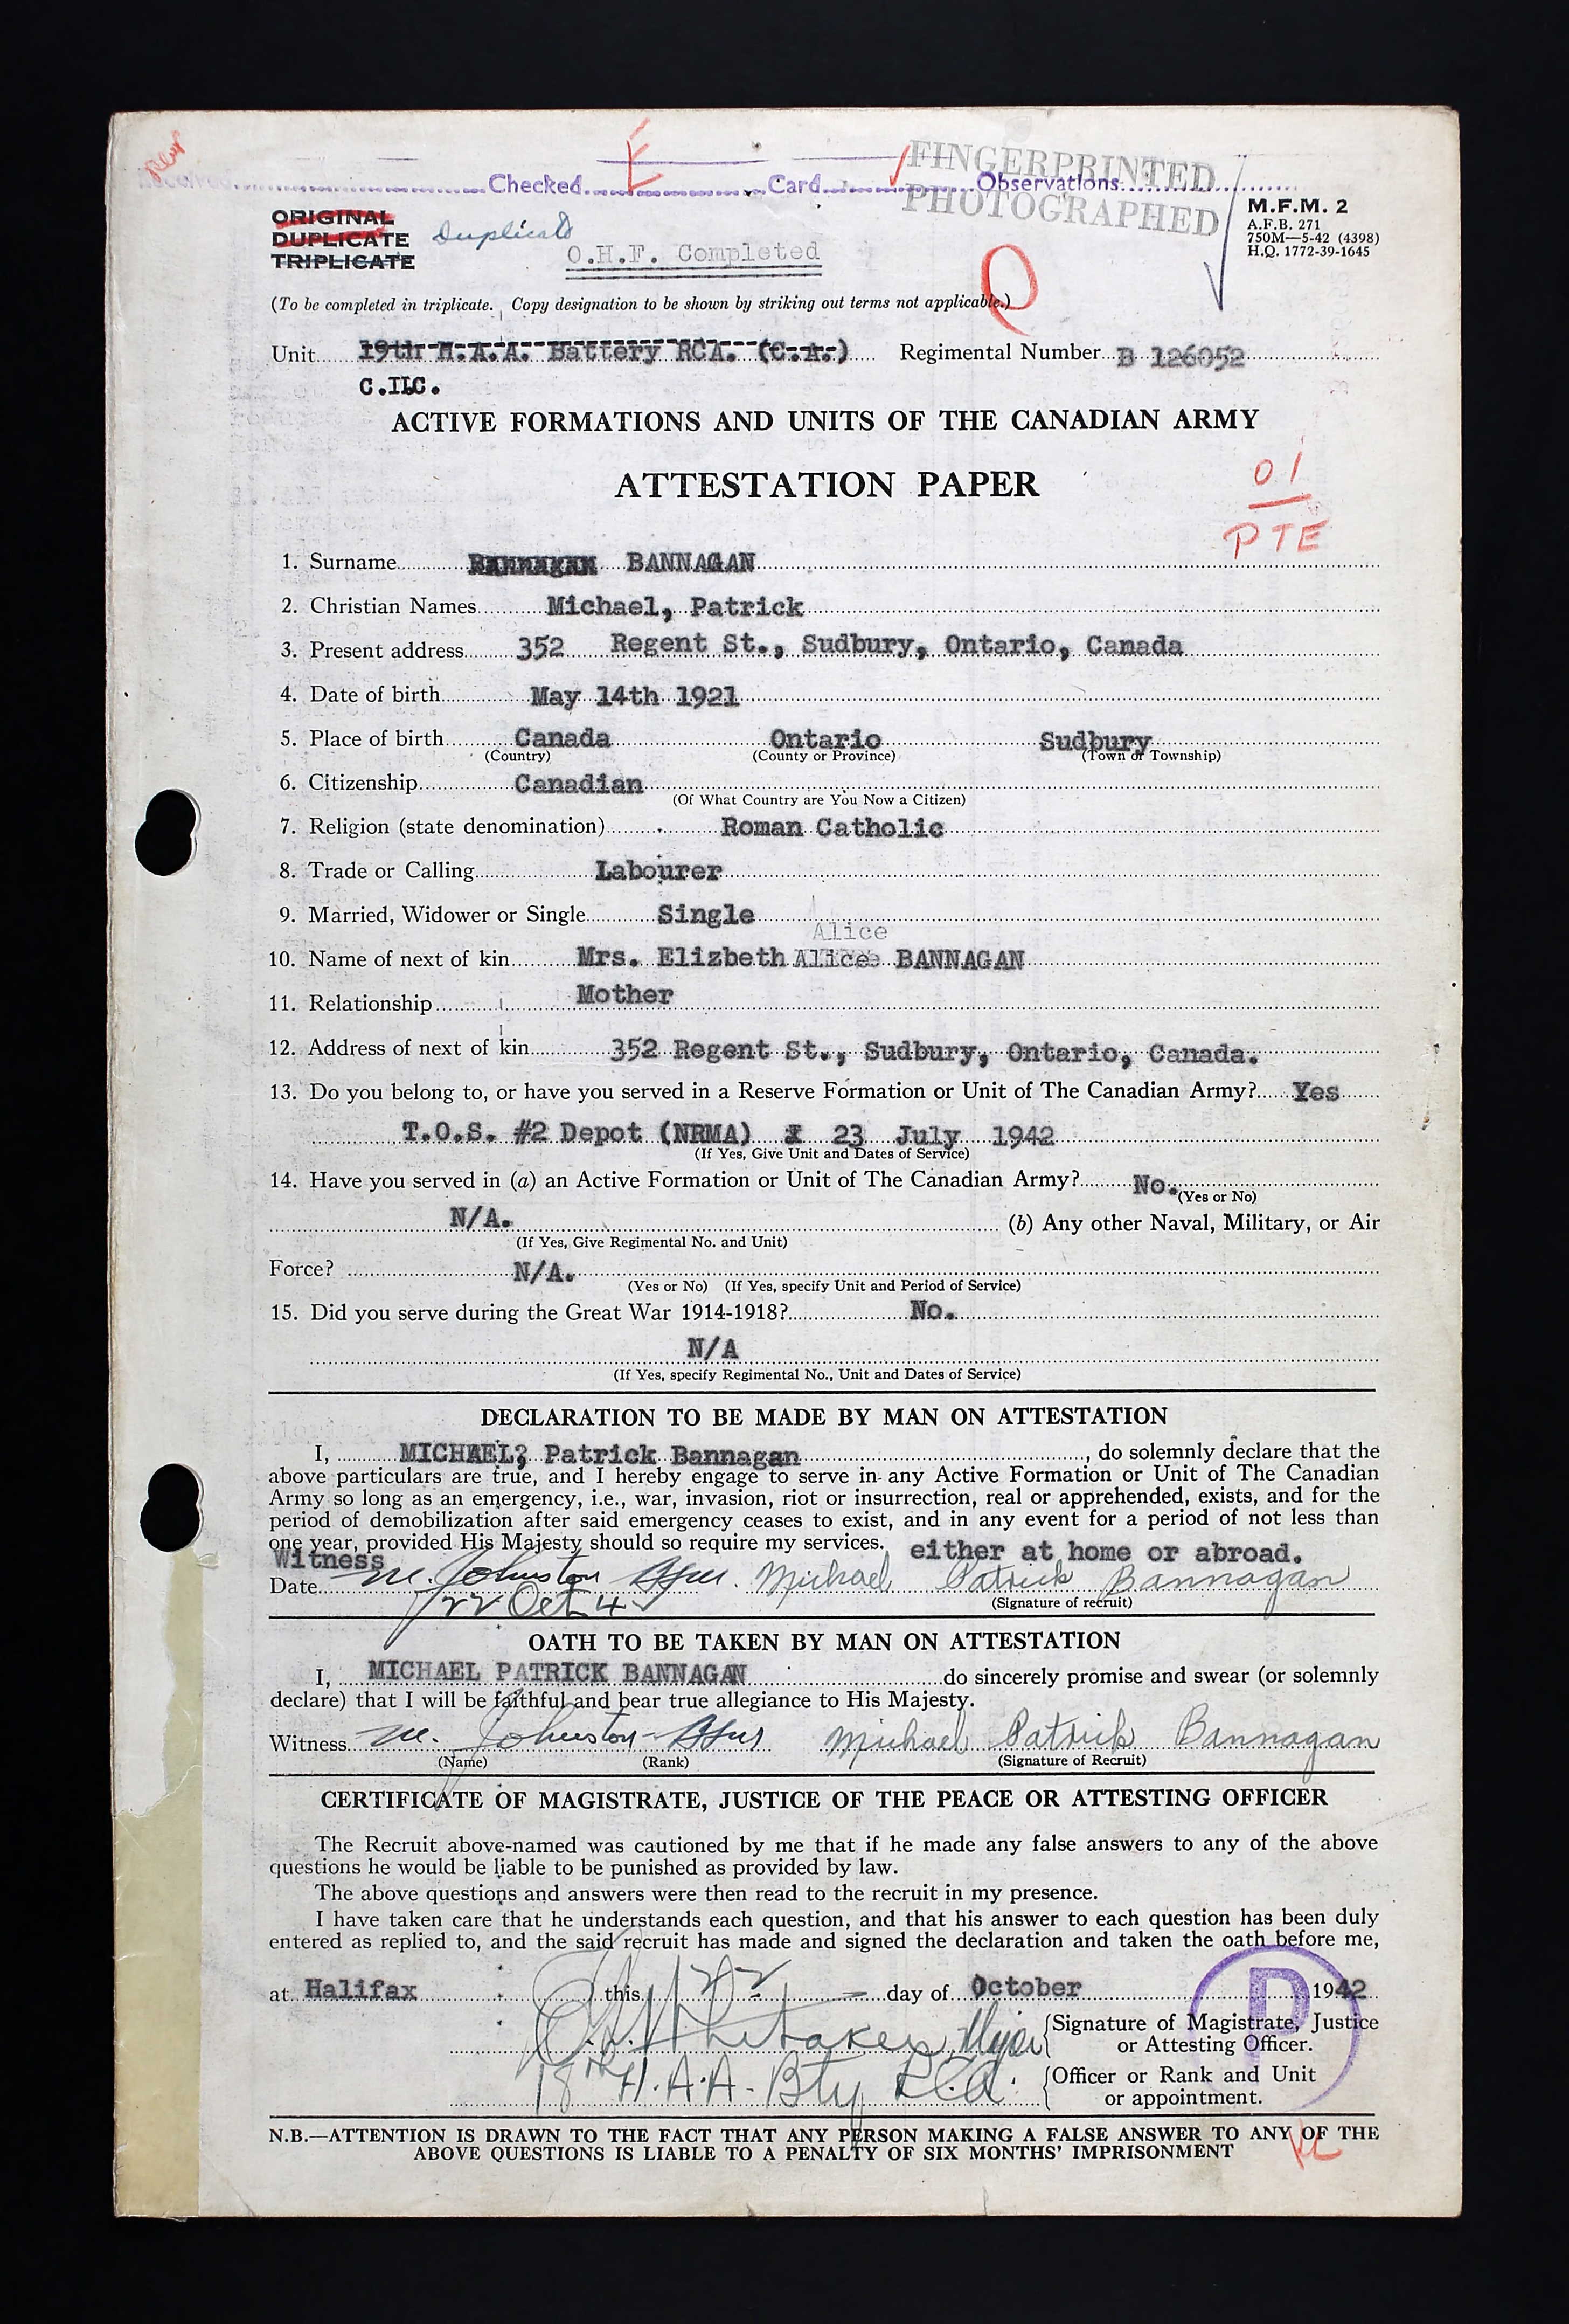 Checked Card Observations
FINGERPRINTED
PHOTOGRAPHED
ORIGINAL
DUPLICATE Duplicate
TRIPLICATE
O.H.F. Completed
M.F.M. 2
A.F.B. 271
750M—5-42 (4398)
H.Q. 1772-39-1645
(To be completed in triplicate. Copy designation to be shown by striking out terms not applicable.)
Unit 19th H.A.A. Battery RCA. (C.A.) Regimental Number B 126052
ACTIVE FORMATIONS AND UNITS OF THE CANADIAN ARMY
ATTESTATION PAPER
01
PTE
1. Surname BANNAGAN
2. Christian Names Michael, Patrick
3. Present address 352 Regent St., Sudbury, Ontario, Canada
4. Date of birth May 14th 1921
5. Place of birth Canada Ontario Sudbury
(Country) (County or Province) (Town or Township)
6. Citizenship Canadian
(Of What Country are You Now a Citizen)
7. Religion (state denomination) Roman Catholic
8. Trade or Calling Labourer
9. Married, Widower or Single Single
Alice
10. Name of next of kin Mrs. Elizbeth Alice BANNAGAN
11. Relationship Mother
12. Address of next of kin 352 Regent St., Sudbury, Ontario, Canada.
13. Do you belong to, or have you served in a Reserve Formation or Unit of The Canadian Army? Yes
T.O.S. #2 Depot (NRMA) 23 July 1942
(If Yes, Give Unit and Dates of Service)
14. Have you served in (a) an Active Formation or Unit of The Canadian Army? No.
(Yes or No)
N/A. (b) Any other Naval, Military, or Air
(If Yes, Give Regimental No. and Unit)
Force? N/A.
(Yes or No) (If Yes, specify Unit and Period of Service)
15. Did you serve during the Great War 1914-1918? No.
N/A
(If Yes, specify Regimental No., Unit and Dates of Service)
DECLARATION TO BE MADE BY MAN ON ATTESTATION
I, MICHAEL? Patrick Bannagan, do solemnly declare that the
above particulars are true, and I hereby engage to serve in any Active Formation or Unit of The Canadian
Army so long as an emergency, i.e., war, invasion, riot or insurrection, real or apprehended, exists, and for the
period of demobilization after said emergency ceases to exist, and in any event for a period of not less than
one year, provided His Majesty should so require my services. either at home or abroad.
Witness
Date M. Johnston Michael Patrick Bannagan
22 Oct 42 (Signature of recruit)
OATH TO BE TAKEN BY MAN ON ATTESTATION
I, MICHAEL PATRICK BANNAGAN do sincerely promise and swear (or solemnly
declare) that I will be faithful and bear true allegiance to His Majesty.
Witness M. Johnston Michael Patrick Bannagan
(Name) (Rank) (Signature of Recruit)
CERTIFICATE OF MAGISTRATE, JUSTICE OF THE PEACE OR ATTESTING OFFICER
The Recruit above-named was cautioned by me that if he made any false answers to any of the above
questions he would be liable to be punished as provided by law.
The above questions and answers were then read to the recruit in my presence.
I have taken care that he understands each question, and that his answer to each question has been duly
entered as replied to, and the said recruit has made and signed the declaration and taken the oath before me,
at Halifax this 22 day of October 1942
Whitaker Major Signature of Magistrate, Justice
or Attesting Officer.
18th H.A.A. Bty RCA. Officer or Rank and Unit
or appointment.
D
N.B.—ATTENTION IS DRAWN TO THE FACT THAT ANY PERSON MAKING A FALSE ANSWER TO ANY OF THE
ABOVE QUESTIONS IS LIABLE TO A PENALTY OF SIX MONTHS' IMPRISONMENT